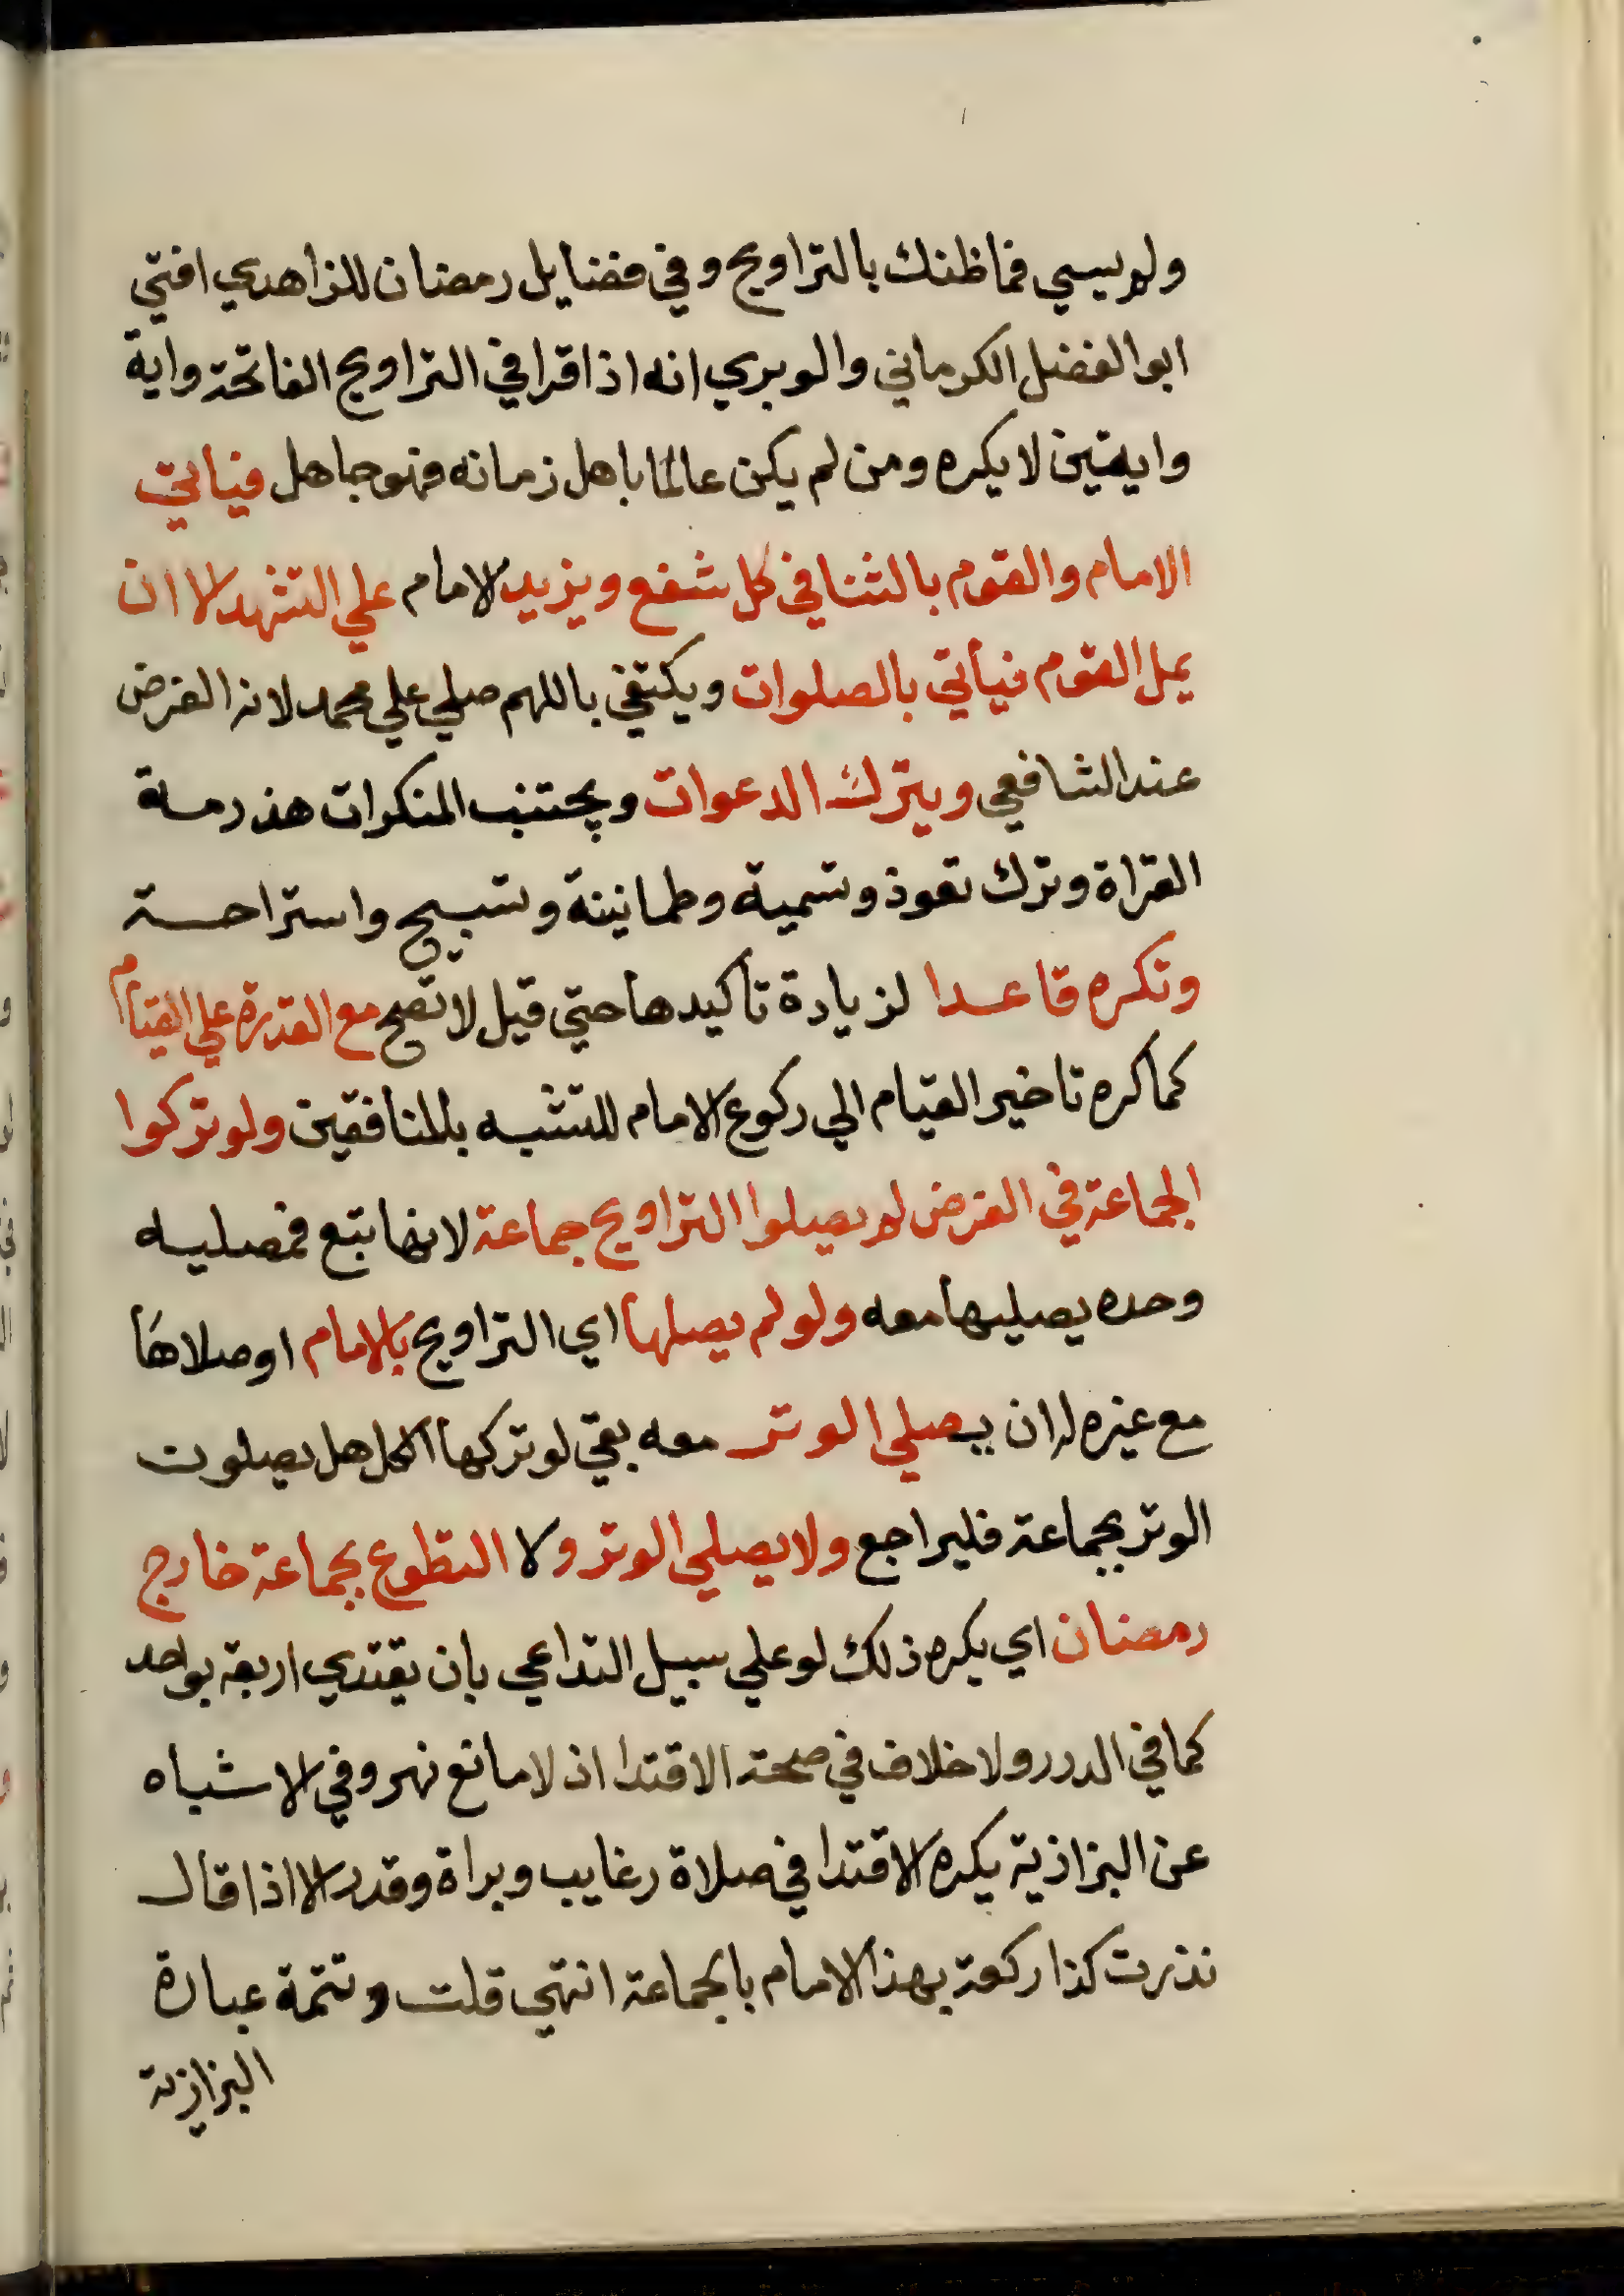 ولم يسي فماظنك بالتراويح وفي فضايل رمضان للزاهدي افتي
ابو الفضل الكرماني والوبري انه اذا قرا في التراويح الفاتحة واية
وايتين لا يكره ومن لم يكن عالما باهل زمانه فهو جاهل فياتي
الامام والقوم بالثنا في كل شفع ويزيد الامام علي التشهد الا ان
يمل القوم فيأتي بالصلوات ويكتفي باللهم صلي علي محمد لانه الفرض
عند الشافعي ويترك الدعوات ويجتنب المنكرات هذرمة
القراة وترك تعوذ وتسمية وطمانينة وتسبيح واستراحة
وتكره قاعدا لزيادة تأكيدها حتي قيل لا تصح مع القدرة علي القيام
كما كره تاخير القيام الي ركوع الامام للتشبه بالمنافقين ولو تركوا
الجماعة في الفرض لم يصلوا التراويح جماعة لانها تبع فمصليه
وحده يصليها معه ولو لم يصلها اي التراويح بالامام او صلاها
مع غيره له ان يصلي الوتر معه بقي لو تركها الكل هل يصلون
الوتر بجماعة فليراجع ولا يصلي الوتر ولا التطوع بجماعة خارج
رمضان اي يكره ذلك لو علي سبيل التداعي بان يقتدي اربعة بواحد
كما في الدرر ولا خلاف في صحة الاقتدا اذ لا مانع نهر وفي الاشباه
عن البزازية يكره الاقتدا في صلاة رغايب وبراة وقدر الا اذا قال
نذرت كذا ركعة بهذا الامام بالجماعة انتهي قلت وتتمة عبارة
البزازية